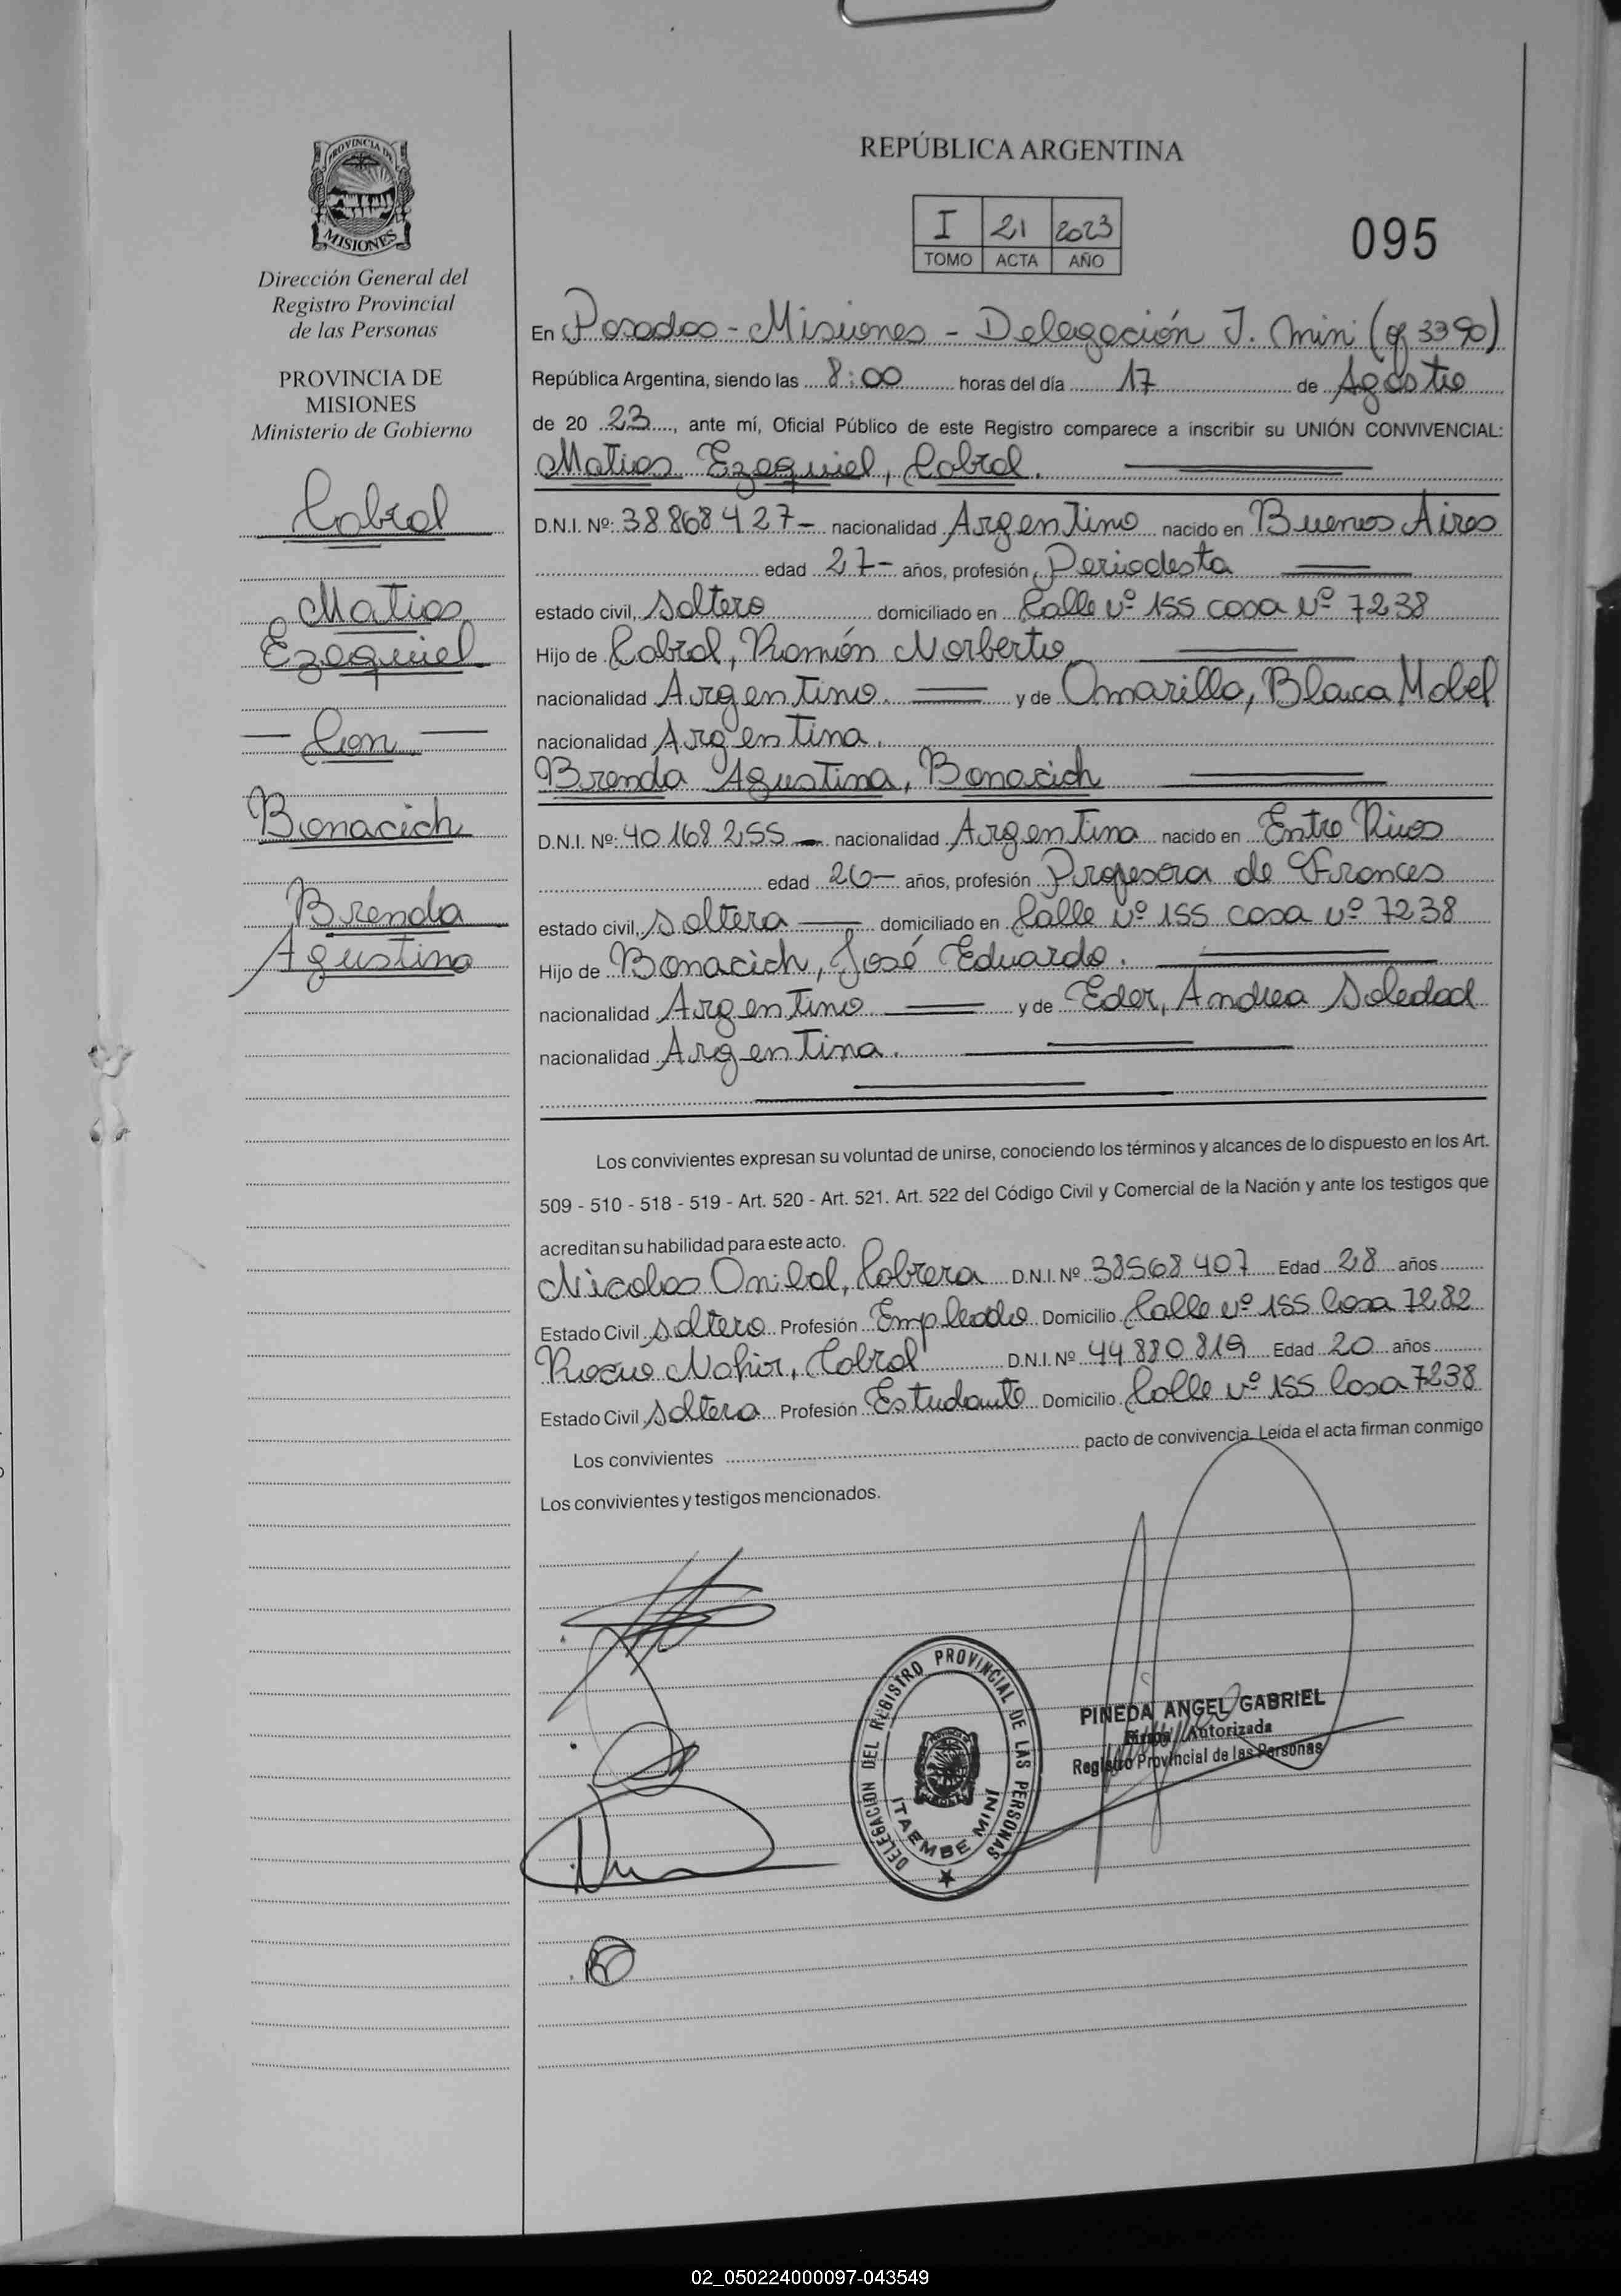 PROVINCIA DE
MISIONES
Dirección General del
Registro Provincial
de las Personas
PROVINCIA DE
MISIONES
Ministerio de Gobierno
Cabral
Matias
Ezequiel
— Con —
Bonacich
Brenda
Agustina
REPÚBLICA ARGENTINA
I 21 2023
TOMO ACTA AÑO
095
En Posadas - Misiones - Delegación I. Mini (of 3390)
República Argentina, siendo las 8:00 horas del día 17 de Agosto
de 20 23, ante mí, Oficial Público de este Registro comparece a inscribir su UNIÓN CONVIVENCIAL:
Matias Ezequiel, Cabral.
D.N.I. Nº: 38868427- nacionalidad Argentino nacido en Buenos Aires
edad 27- años, profesión Periodista
estado civil, Soltero domiciliado en Calle Nº 155 casa Nº 7238
Hijo de Cabral, Ramón Norberto
nacionalidad Argentino. y de Amarilla, Blanca Mabel
nacionalidad Argentina.
Brenda Agustina, Bonacich
D.N.I. Nº: 40168255 - nacionalidad Argentina nacido en Entre Rios
edad 26- años, profesión Profesora de Frances
estado civil, Soltera domiciliado en Calle Nº 155 casa Nº 7238
Hijo de Bonacich, José Eduardo.
nacionalidad Argentino y de Eder, Andrea Soledad
nacionalidad Argentina.
Los convivientes expresan su voluntad de unirse, conociendo los términos y alcances de lo dispuesto en los Art.
509 - 510 - 518 - 519 - Art. 520 - Art. 521. Art. 522 del Código Civil y Comercial de la Nación y ante los testigos que
acreditan su habilidad para este acto.
Nicolas Anibal, Cabrera D.N.I. Nº 38568407 Edad 28 años
Estado Civil Soltero Profesión Empleado Domicilio Calle Nº 155 Casa 7282
Rocio Nahir, Cabral D.N.I. Nº 44880819 Edad 20 años
Estado Civil Soltera Profesión Estudiante Domicilio Calle Nº 155 Casa 7238
Los convivientes pacto de convivencia. Leída el acta firman conmigo
Los convivientes y testigos mencionados.
DELEGACIÓN DEL REGISTRO PROVINCIAL DE LAS PERSONAS
ITAEMBE MINI
PINEDA ANGEL GABRIEL
Firma Autorizada
Registro Provincial de las Personas
02_050224000097-043549